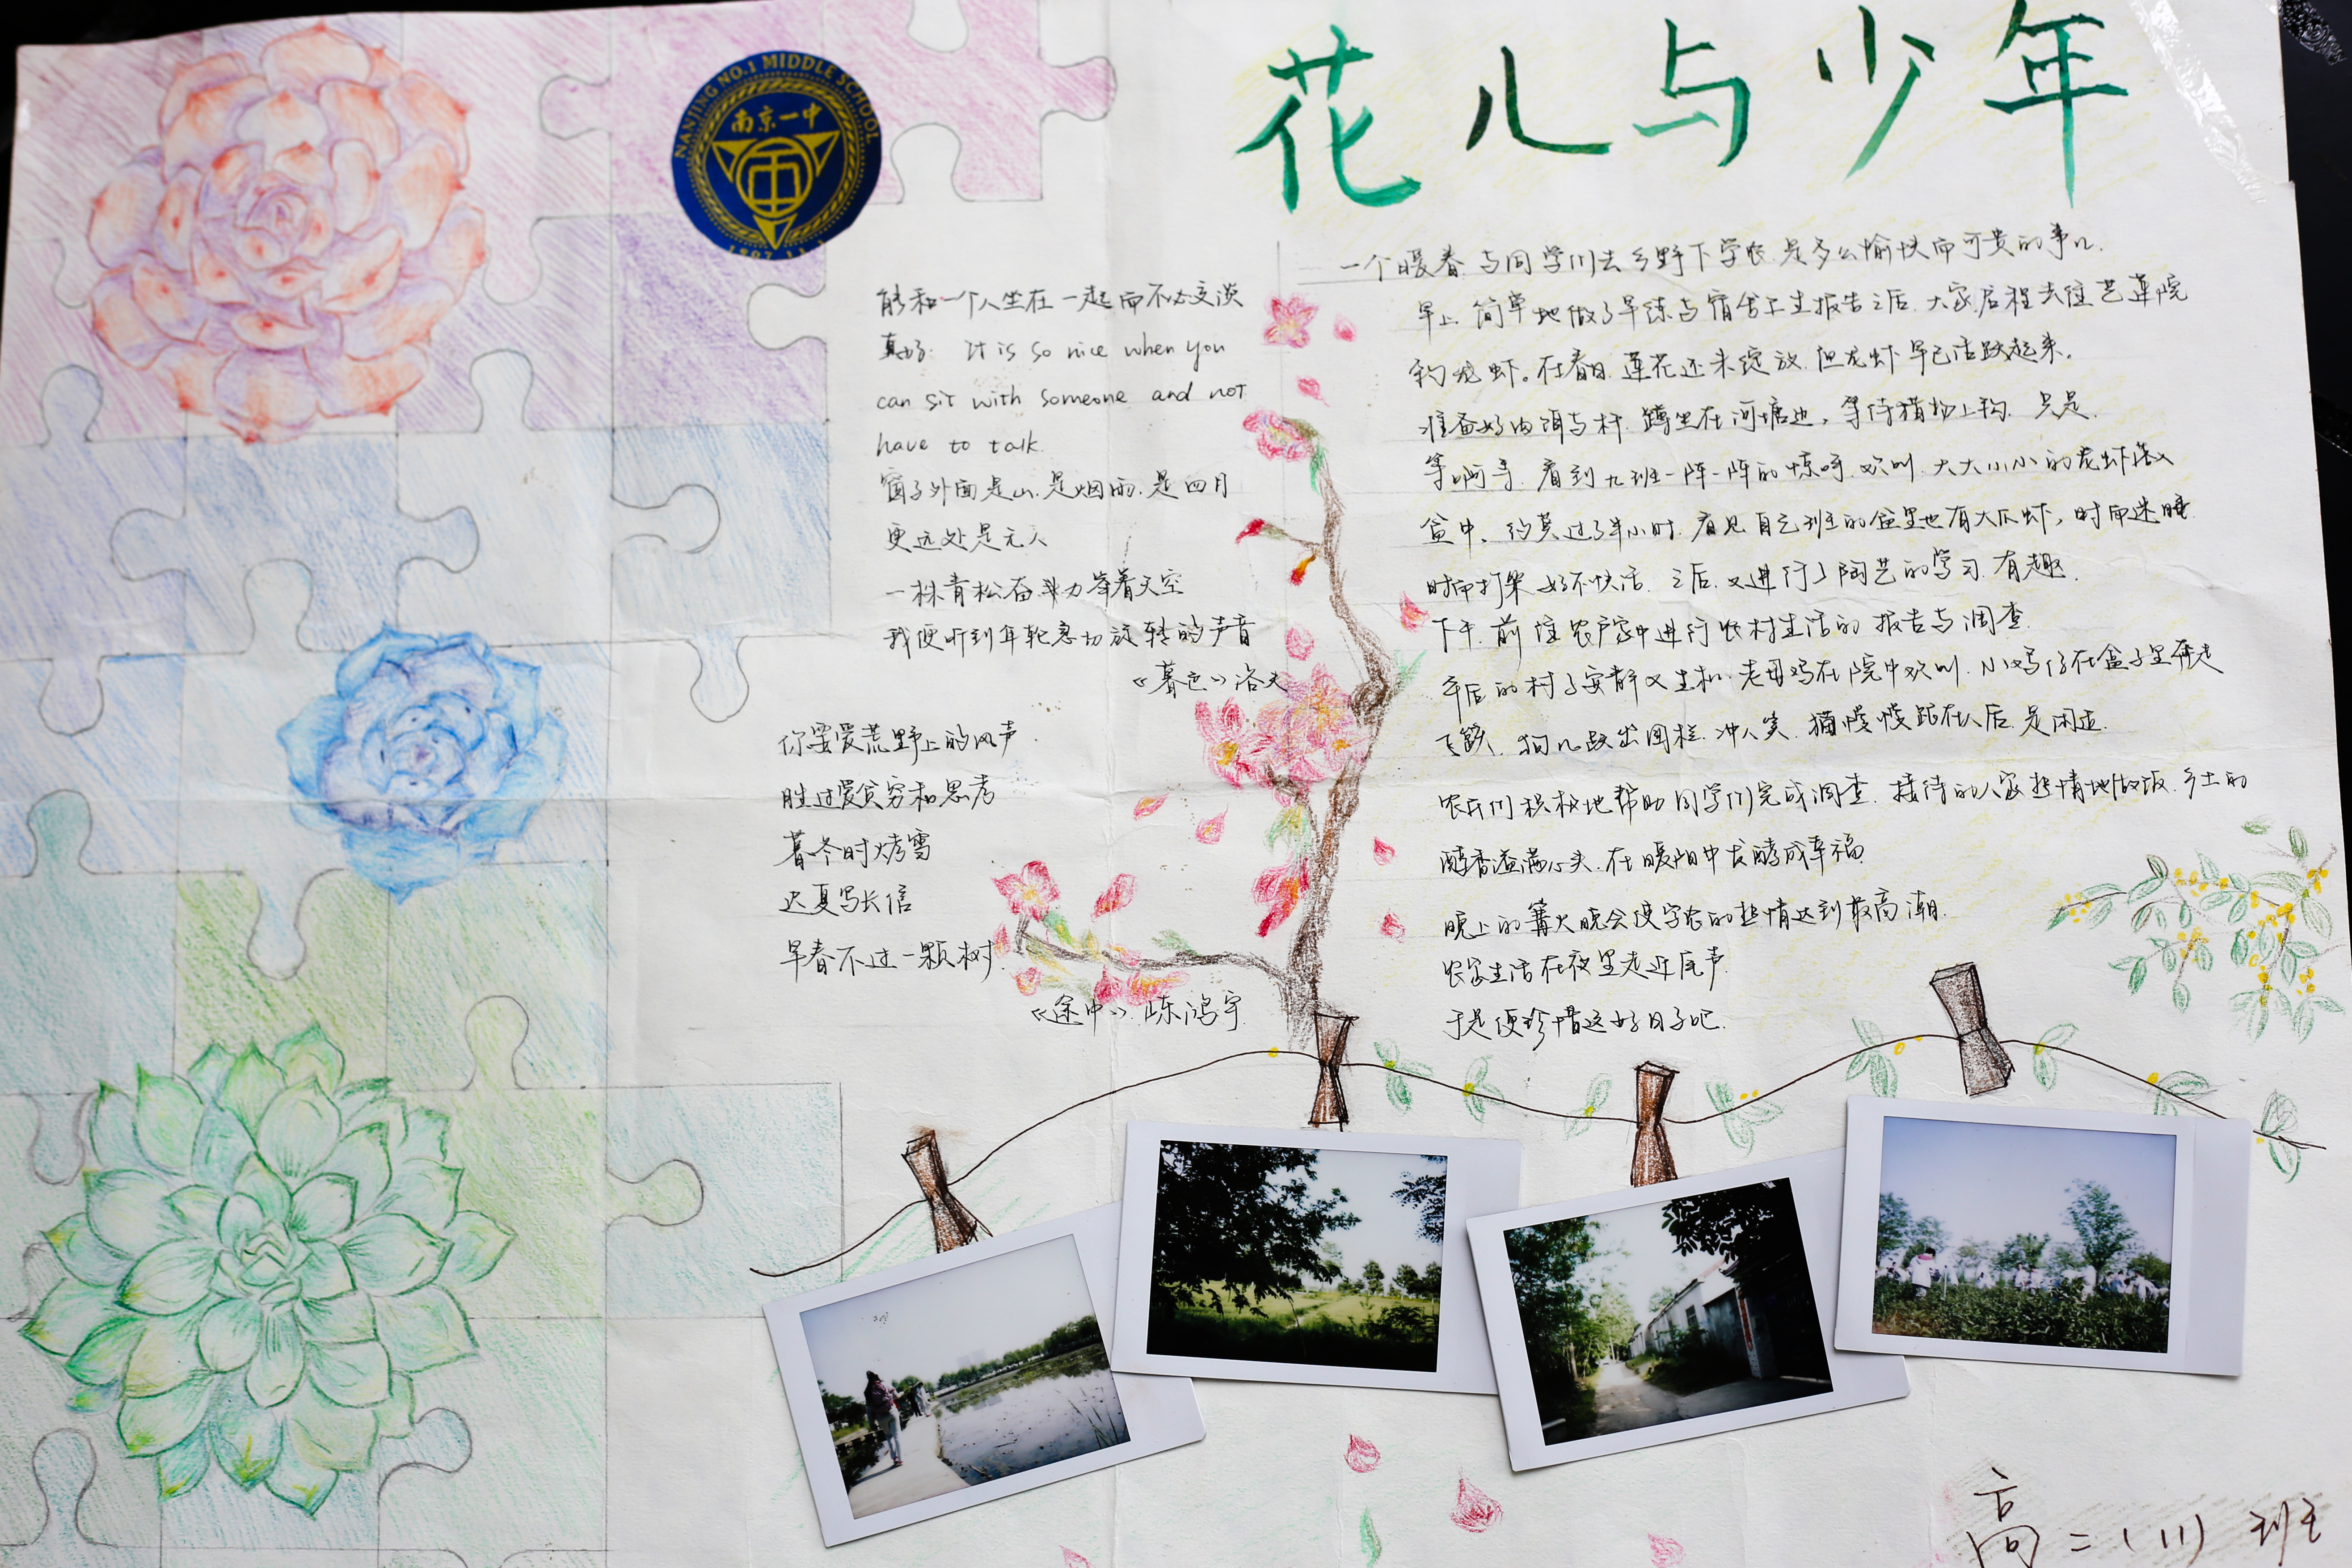 花儿与少年
NANJING NO.1 MIDDLE SCHOOL
南京一中
1907.11.1
能和一个人坐在一起而不必交谈
真好. It is so nice when you
can sit with someone and not
have to talk.
窗子外面是山.是烟雨.是四月
更远处是无人
一株青松奋力举着天空
我便听到年轮急切旋转的声音
《暮色》洛夫
你要爱荒野上的风声
胜过爱贫穷和思考
暮冬时烤雪
迟夏写长信
早春不过一颗树
《途中》
一个暖春.与同学们去乡野下学农.是多么愉快而可贵的事儿.
早上.简单地做了早练与宿舍卫生报告之后.大家启程去往艺莲院
钓龙虾。在春日.莲花还未绽放.但龙虾早已活跃起来.
准备好肉饵与杆.蹲坐在河塘边,等待猎物上钩.只是.
等啊等.看到九班一阵一阵的惊呼.欢叫.大大小小的龙虾
盆中.约莫过了半小时.看见自己班的盆里也有大爪虾,时而迷睡
时而打架.好不快活.之后.又进行了陶艺的学习.有趣.
下午.前往农户家中进行农村生活的报告与调查.
午后的村子安静又生机.老母鸡在院中欢叫.小鸡仔在盒子里奔走
飞跃.狗儿跃出围栏.冲人笑.猫慢慢跟在人后.是闲逛.
农户们积极地帮助同学们完成调查.接待的人家热情地做饭.乡土的
醇香溢满心头.在暖阳中发酵成幸福
晚上的篝火晚会使学农的热情达到最高潮.
农家生活在夜里走近尾声
于是便珍惜这好日子吧.
高二(11)班